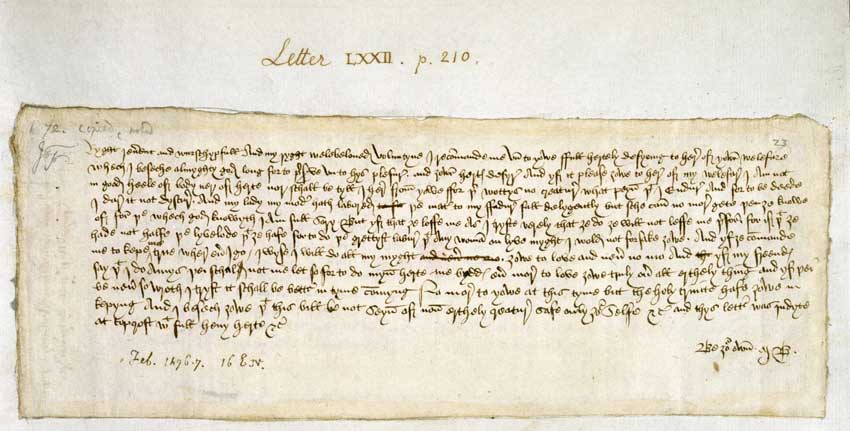 Letter LXXII. p. 210.
72. copied
23
Ryght reverent and wurschypfull and my ryght welebeloved Voluntyne I recommande me un to yowe ffull hertely desyring to here of yowr welefare
whech I beseche almyghty god long for to preserve un to hys plesure and yowr hertys desyre And yf it please yowe to here of my welefare I am not
in good heele of body ner of herte nor schall be tyll I here from yowe For þer wottys no creature what peyn þat I endure And for to be deede
I dare it not dyscure And my lady my moder hath labored þe mater to my ffadure full delygently but sche can no more gete þen ȝe knowe
of for þe whech god knowyth I am full sory But yf that ȝe loffe me as I tryste verely that ȝe do ȝe will not leffe me þerfor for if þat ȝe
hade not halfe þe lyvelode þat ȝe hafe for to do þe grettyst labure þat any woman on lyve myght I wold not forsake ȝowe And yf ȝe commande
me to kepe me true where ever I go I wyse I will do all my myght ȝowe to love and never no mo And yf my freendys
say þat I do amys þei schal not me let so for to do Myn herte me byddys ever more to love ȝowe truly over all erthely thing and yf þei
be never so wroth I tryst it schall be bettur in tyme commyng No more to yowe at this tyme but the holy trinite hafe ȝowe in
kepyng And I besech ȝowe þat this bill be not seyn of non erthely creature safe only ȝour selfe &c and thys lettur was indyte
at Topcroft wt full hevy herte &c
Be ȝour own M B.
Feb. 1476-7. 16 E. IV.